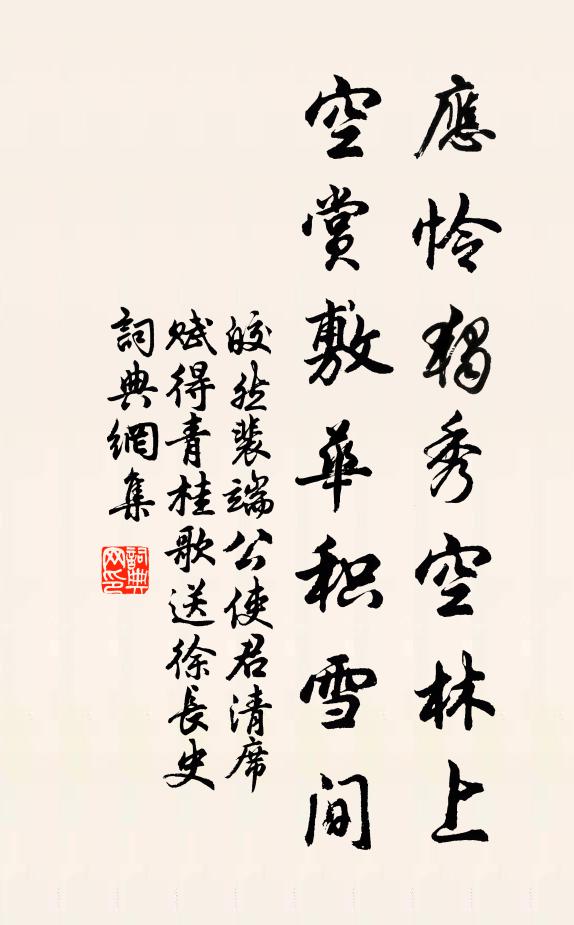 應怜獨秀空林上
空賞敷華积雪間
皎然裴端公使君清席
赋得青桂歌送徐長史
詞典網集
詞典网印